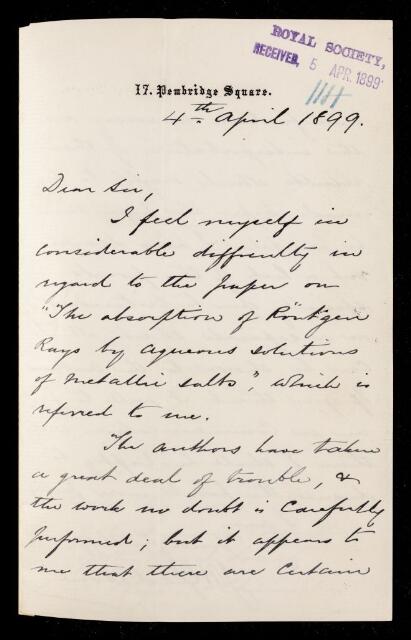 ROYAL SOCIETY,
RECEIVED, 5 APR. 1899
1114
17. Pembridge Square.
4th April 1899.
Dear Sir,
I feel myself in
considerable difficulty in
regard to the paper on
"The absorption of Röntgen
Rays by aqueous solutions
of metallic salts", which is
referred to me.
The authors have taken
a great deal of trouble, &
the work no doubt is carefully
performed; but it appears to
me that there are certain